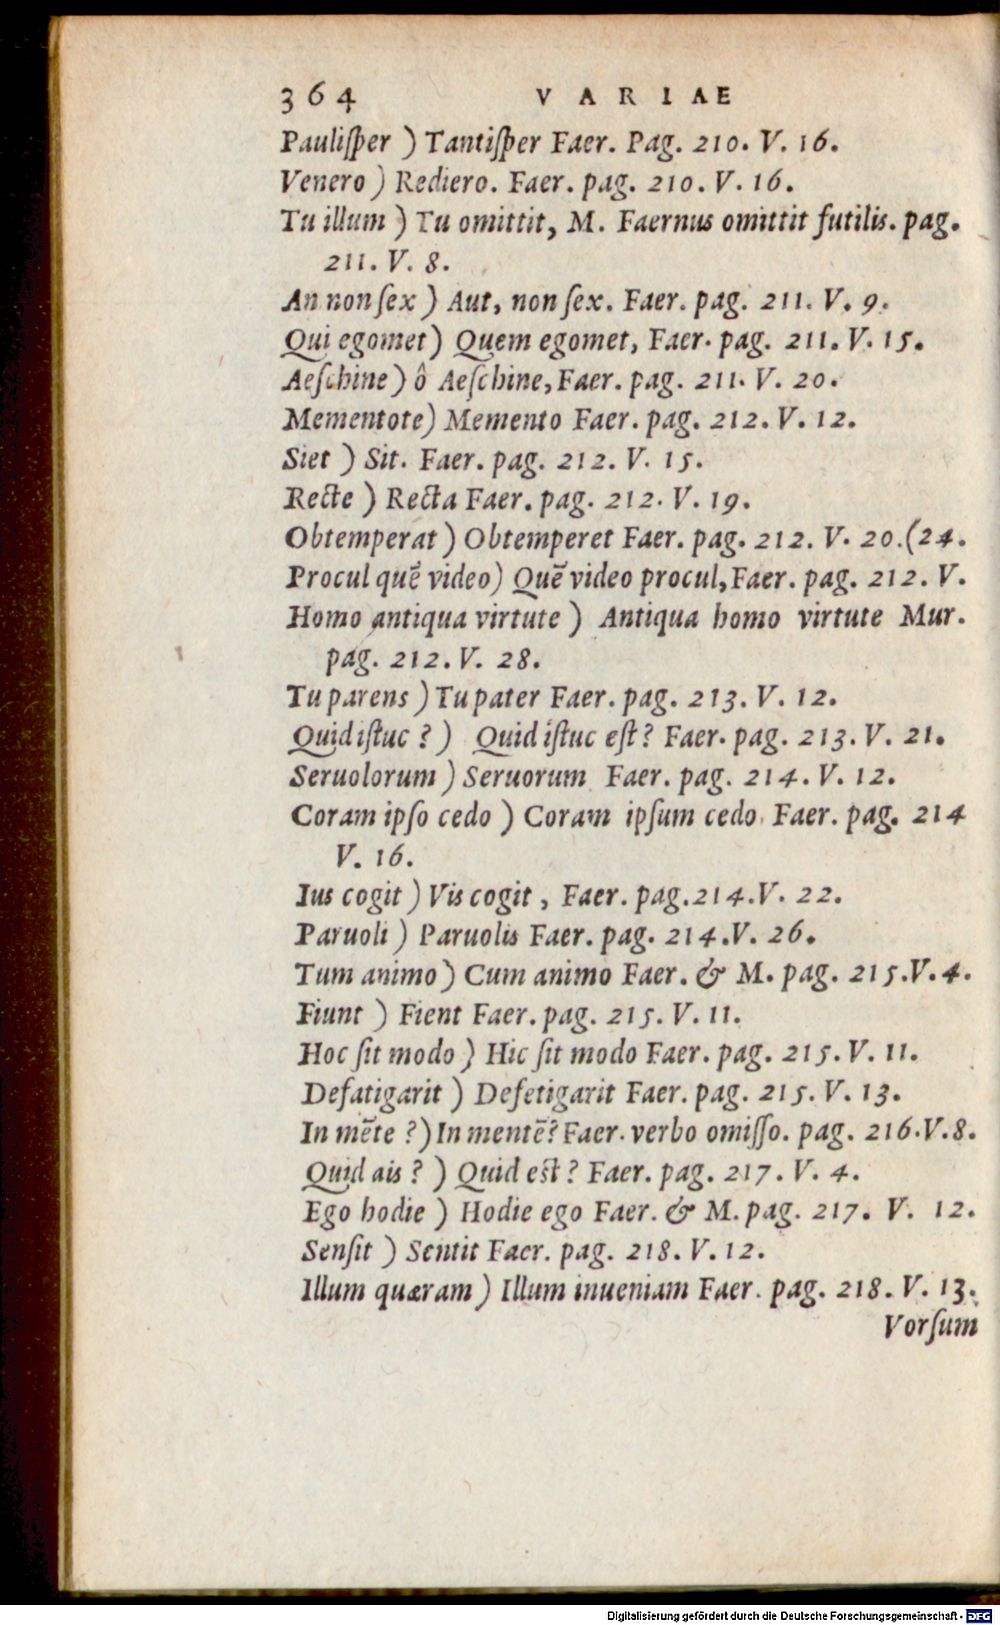 364 VARIAE
Pauliſper ) Tantiſper Faer. Pag. 210. V. 16.
Venero ) Rediero. Faer. pag. 210. V. 16.
Tu illum ) Tu omittit, M. Faernus omittit futilis. pag.
211. V. 8.
An non ſex ) Aut, non ſex. Faer. pag. 211. V. 9.
Qui egomet) Quem egomet, Faer. pag. 211. V. 15.
Aeſchine ) ô Aeſchine, Faer. pag. 211. V. 20.
Mementote) Memento Faer. pag. 212. V. 12.
Siet ) Sit. Faer. pag. 212. V. 15.
Recte ) Recta Faer. pag. 212. V. 19.
Obtemperat ) Obtemperet Faer. pag. 212. V. 20. (24.
Procul quē video) Quē video procul, Faer. pag. 212. V.
Homo antiqua virtute ) Antiqua homo virtute Mur.
pag. 212. V. 28.
Tu parens ) Tu pater Faer. pag. 213. V. 12.
Quid iſtuc ? ) Quid iſtuc eſt? Faer. pag. 213. V. 21.
Seruolorum ) Seruorum Faer. pag. 214. V. 12.
Coram ipſo cedo ) Coram ipſum cedo. Faer. pag. 214
V. 16.
Ius cogit ) Vis cogit, Faer. pag. 214. V. 22.
Paruoli ) Paruolis Faer. pag. 214. V. 26.
Tum animo ) Cum animo Faer. & M. pag. 215. V. 4.
Fiunt ) Fient Faer. pag. 215. V. 11.
Hoc ſit modo ) Hic ſit modo Faer. pag. 215. V. 11.
Defatigarit ) Defetigarit Faer. pag. 215. V. 13.
In mēte ?) In mentē? Faer. verbo omiſſo. pag. 216. V. 8.
Quid ais ? ) Quid eſt? Faer. pag. 217. V. 4.
Ego hodie ) Hodie ego Faer. & M. pag. 217. V. 12.
Senſit ) Sentit Faer. pag. 218. V. 12.
Illum quæram ) Illum inueniam Faer. pag. 218. V. 13.
Vorſum
Digitalisierung gefördert durch die Deutsche Forschungsgemeinschaft - DFG